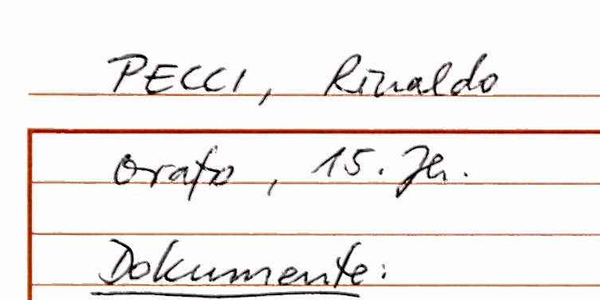 PECCI, Rinaldo
Orafo, 15. Jh.
Dokumente: